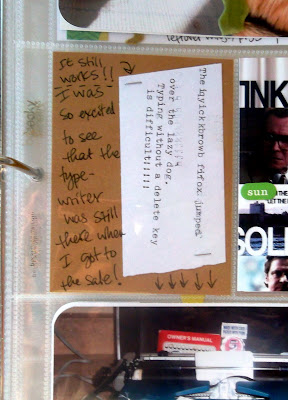 It still
works!!
I was
so excited
to see
that the
type-
writer
was still
there when
I got to
the sale!
The bqyickkbrowb fifox jumped
over the lazy dog.
Typing without a delete key
is difficult!!!!!!
INK
sun
SOL
OWNER'S MANUAL